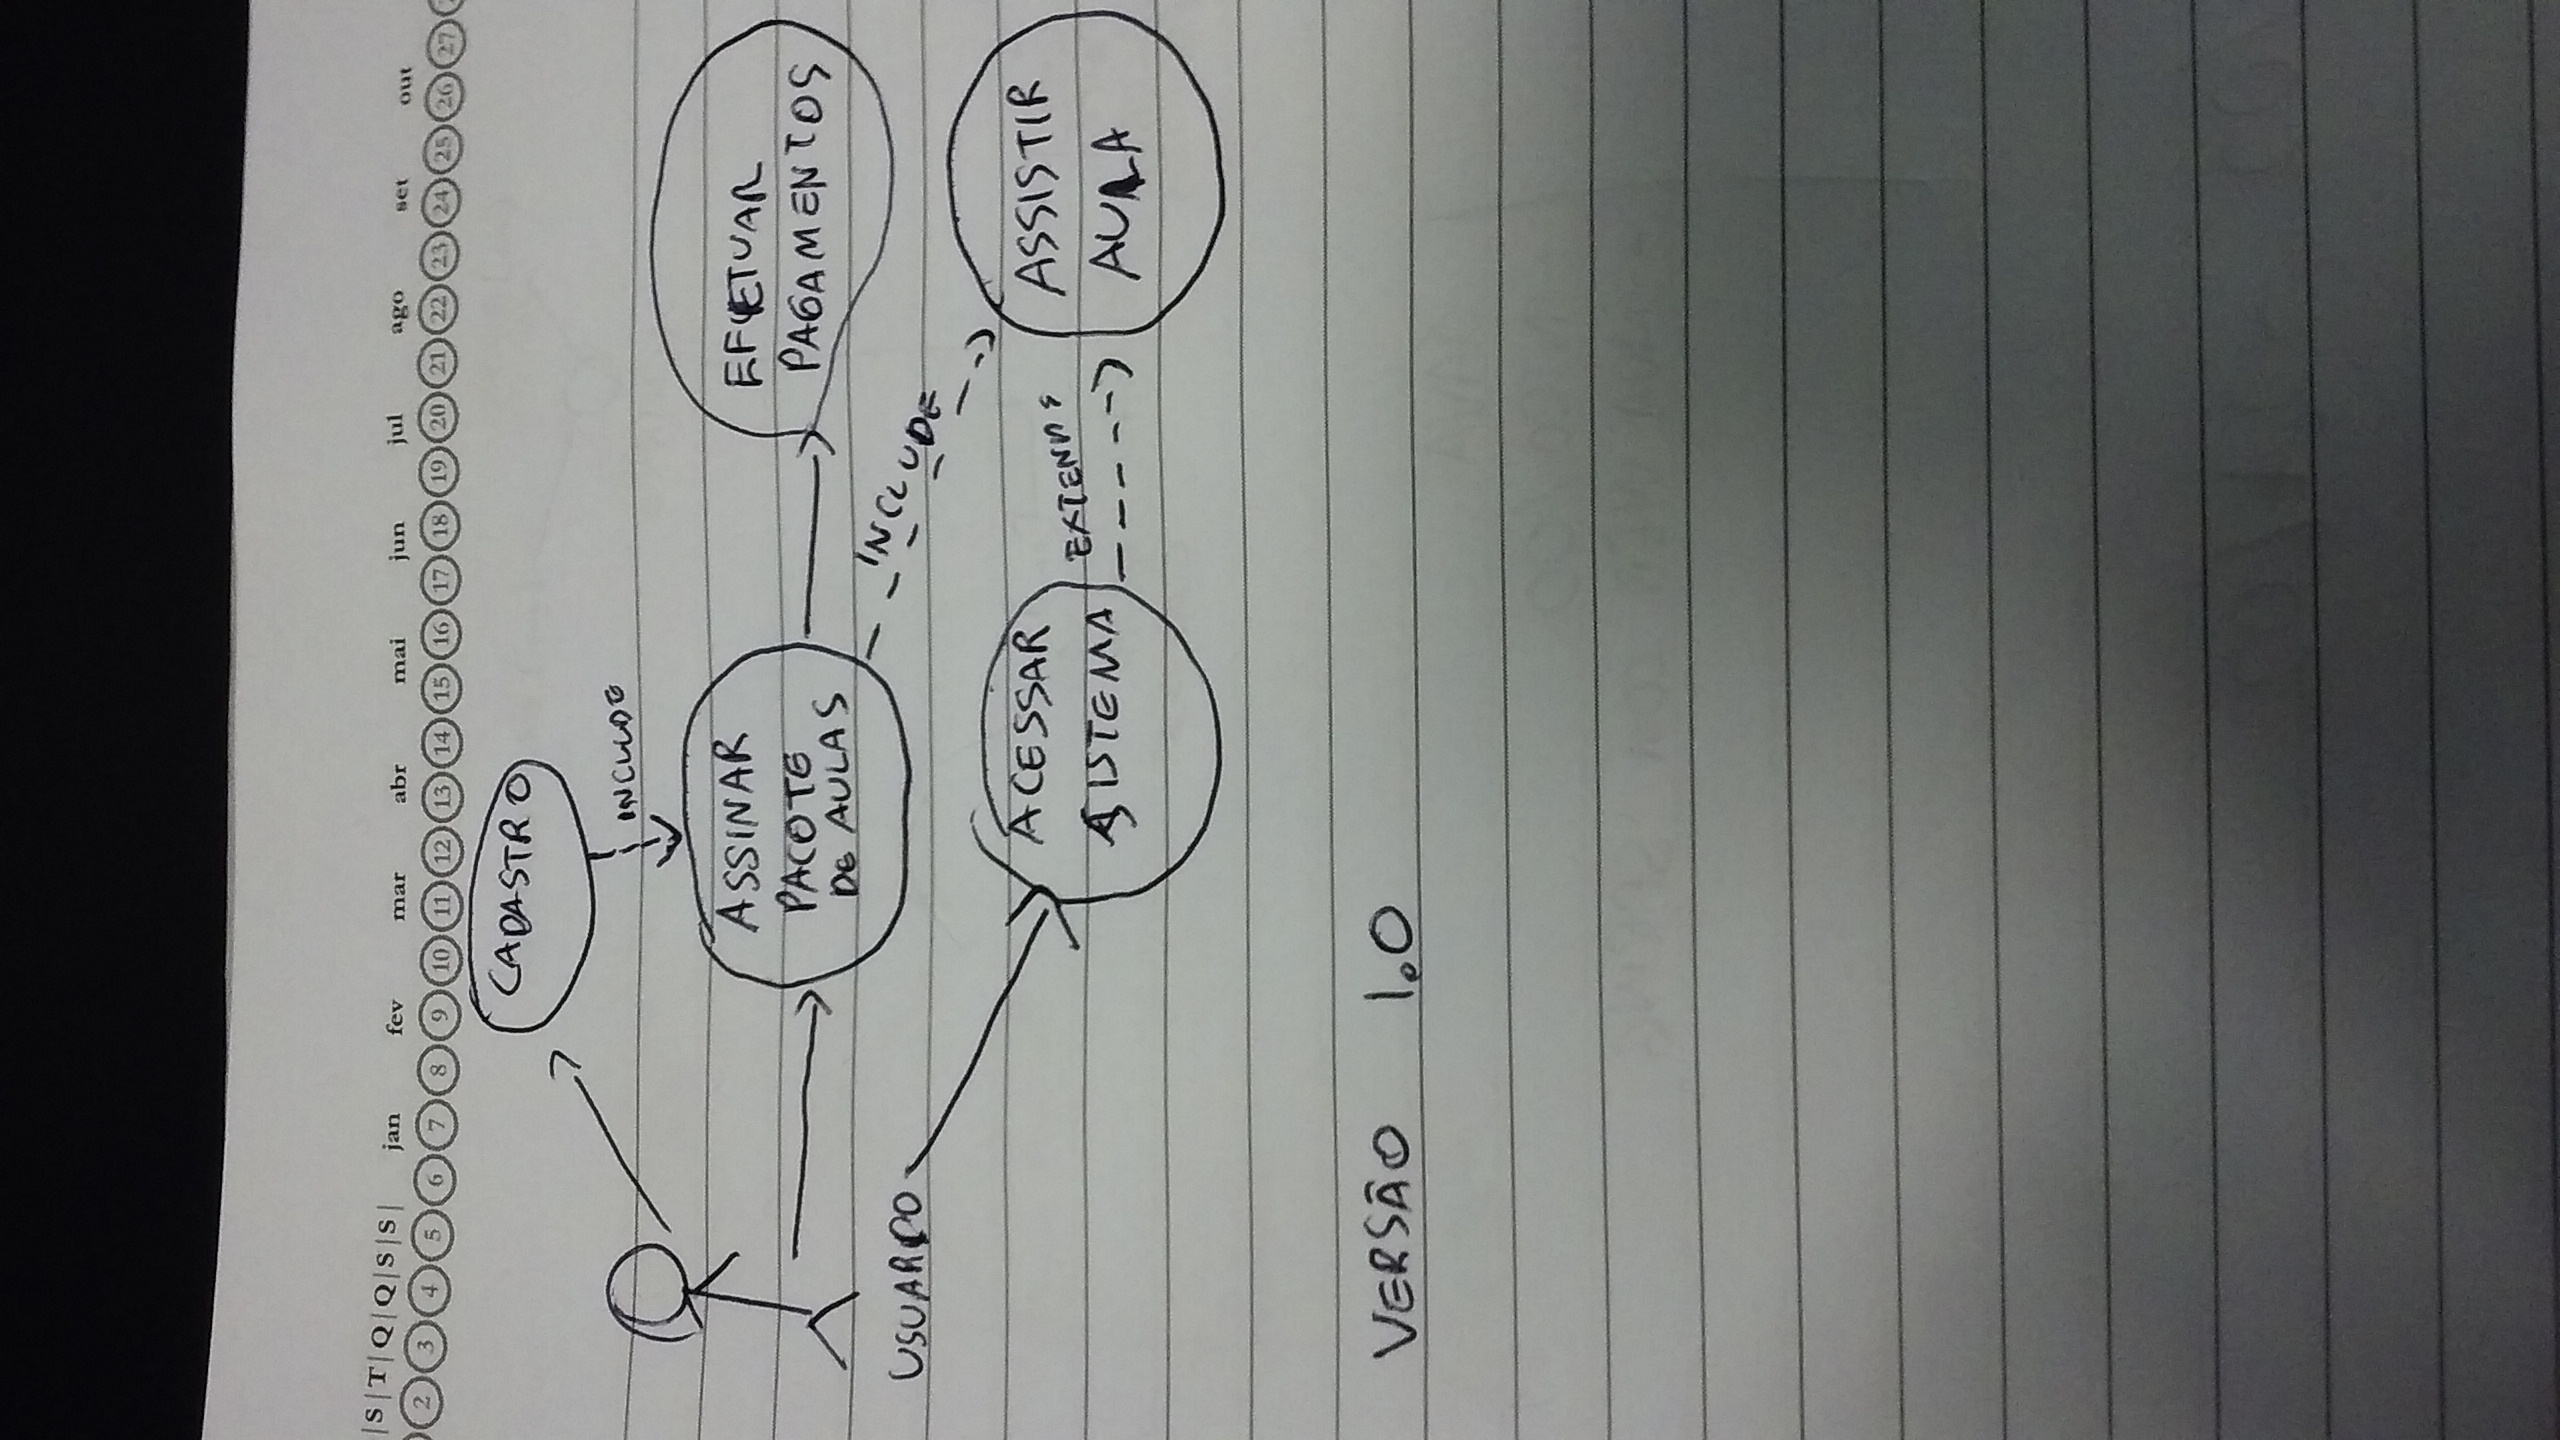 |S|T|Q|Q|S|S| jan fev mar abr mai jun jul ago set out
2 3 4 5 6 7 8 9 10 11 12 13 14 15 16 17 18 19 20 21 22 23 24 25 26 27
CADASTRO
INCLUDE
ASSINAR
PACOTE
DE AULAS
EFETUAR
PAGAMENTOS
USUARIO
INCLUDE
ACESSAR
SISTEMA
EXTENDS
ASSISTIR
AULA
VERSÃO 1.0